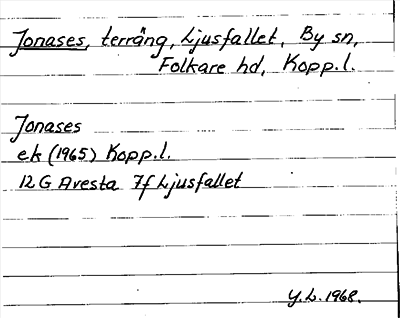 Jonases, terräng, Ljusfallet, By sn,
Folkare hd, Kopp.l.
Jonases
ek (1965) Kopp.l.
12 G Avesta 7f Ljusfallet
Y.L. 1968.